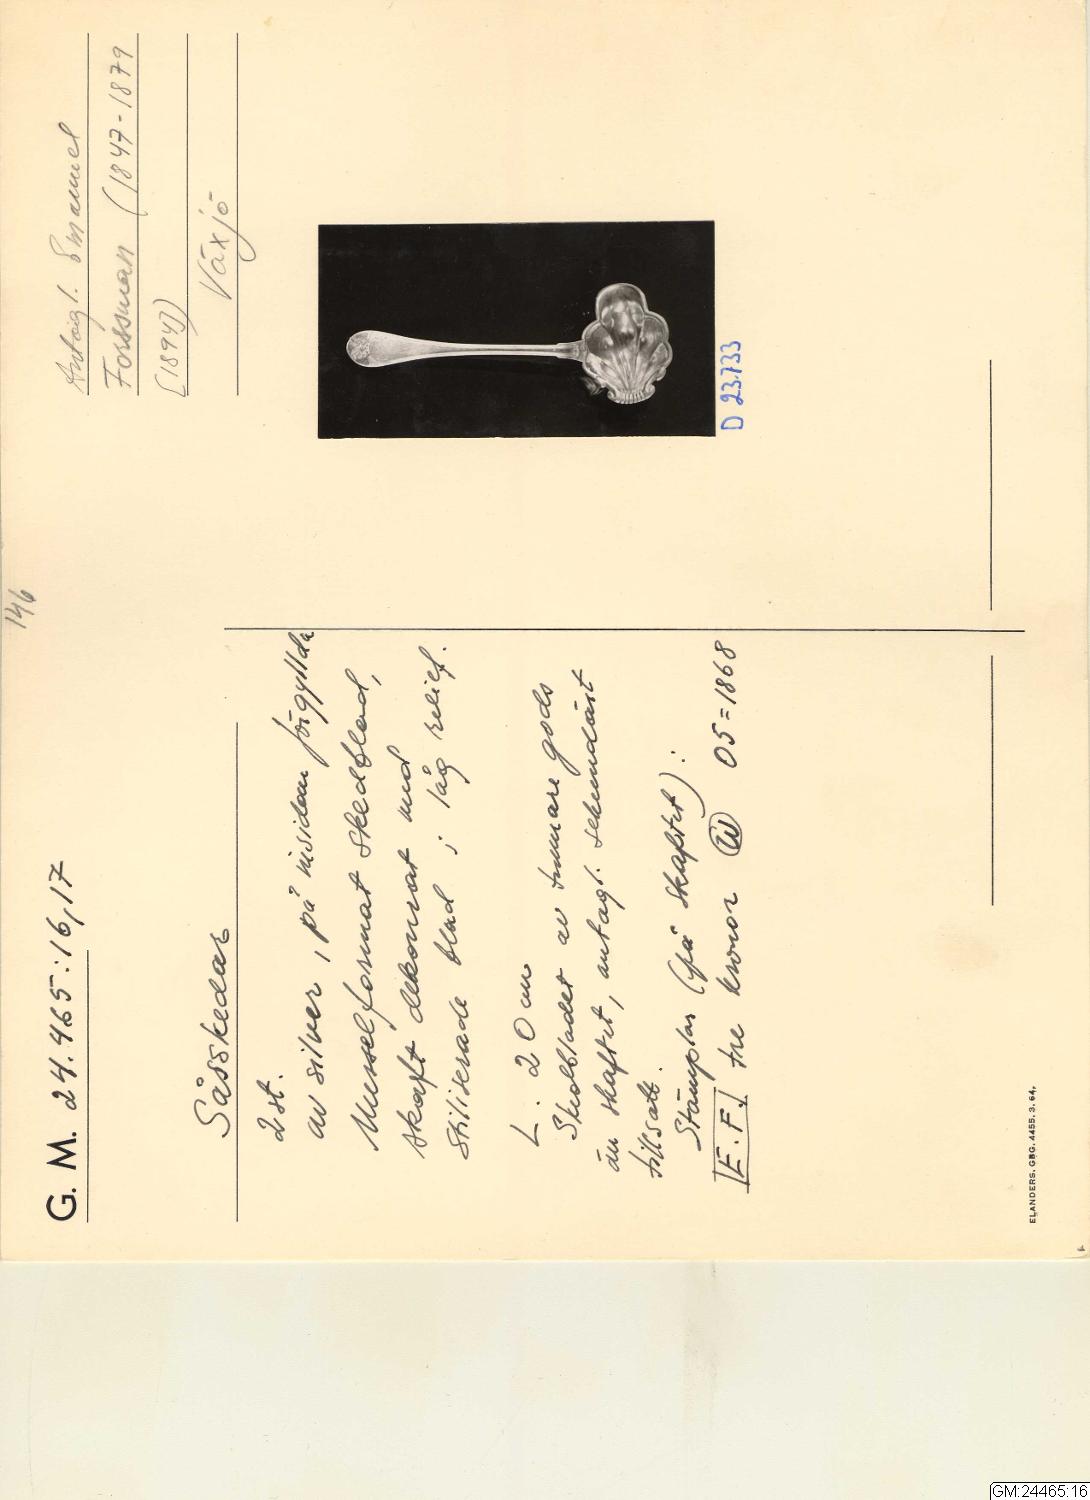 146
G. M. 24.465:16,17
Antagl. Emanuel
Forssman (1847-1879
[1894])
Växjö
Såsskedar
2 st.
av silver, på insidan förgyllda
Musselformat skedblad,
skaft dekorerat med
stiliserade blad i låg relief.
L. 20 cm
Skedbladet av tunnare gods
än skaftet, antagl. sekundärt
tillsatt.
Stämplar (på skaftet):
E.F. tre kronor Ü O5=1868
D 23733
ELANDERS, GBG. 4455. 3. 64.
GM:24465:16